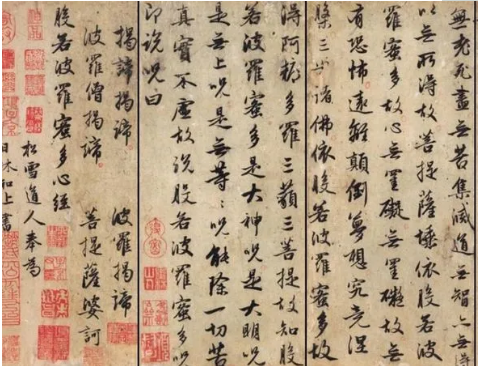 無老死盡無苦集滅道無智亦無得
以無所得故菩提薩埵依般若波
羅蜜多故心無罣礙無罣礙故無
有恐怖遠離顛倒夢想究竟涅
槃三世諸佛依般若波羅蜜多故
得阿耨多羅三藐三菩提故知般
若波羅蜜多是大神呪是大明呪
是無上呪是無等々呪能除一切苦
真實不虛故說般若波羅蜜多呪
即說呪曰
揭諦揭諦　波羅揭諦
波羅僧揭諦　菩提薩婆訶
般若波羅蜜多心經
松雪道人奉為
日林和上書